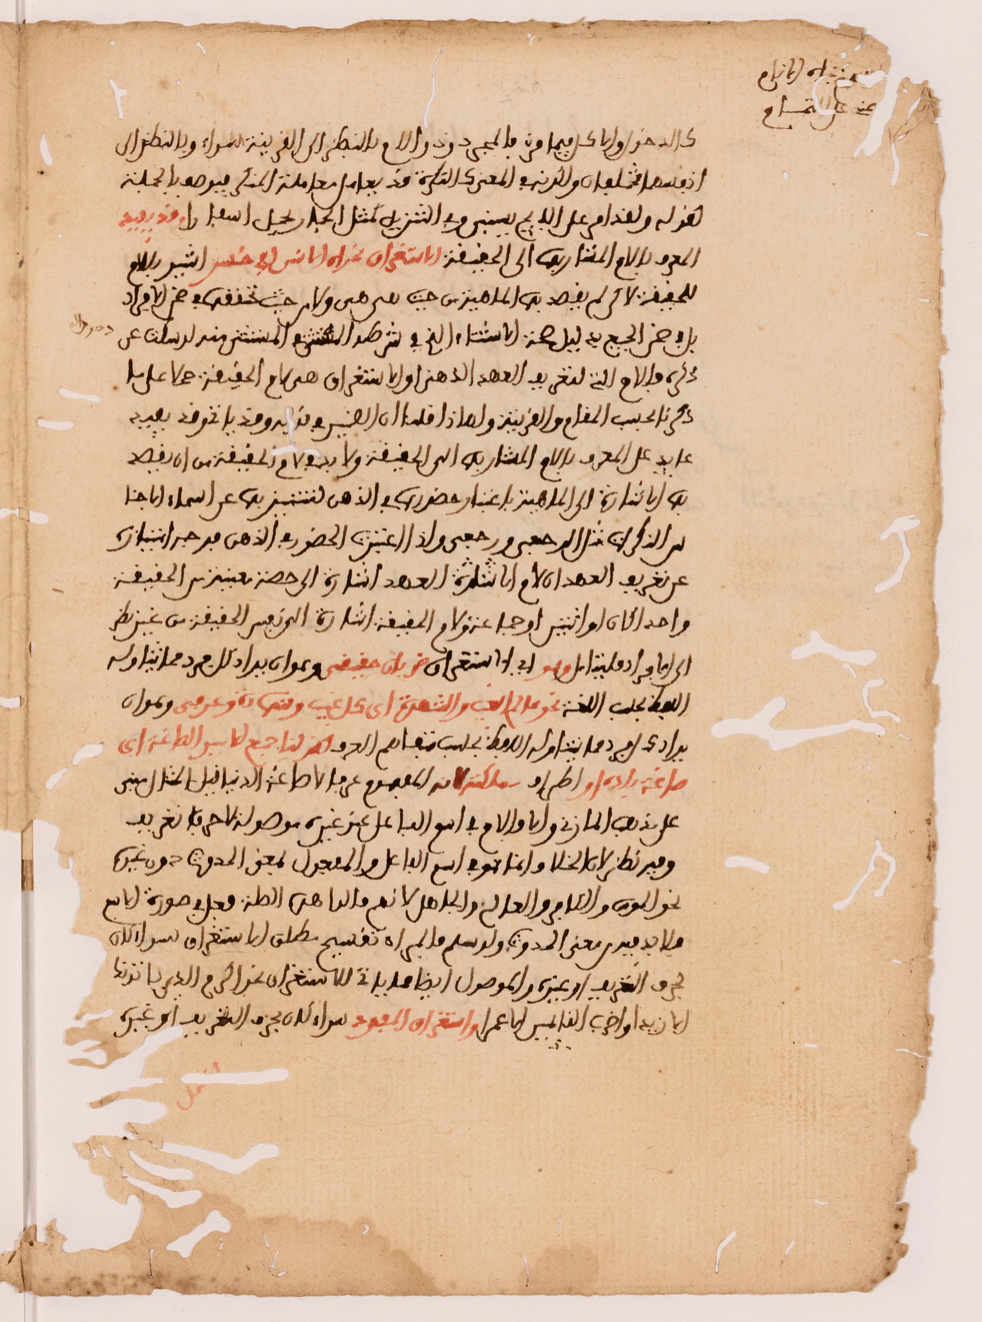 كالدخول والاكل فيما مر فالمجرد وذو اللام بالنظر الى القرينة سواء وبالنظر الى
انفسهما مختلفان ولكونه في المعنى كالنكرة قد يعامل معاملة النكرة فيوصف بالجملة
كقوله ولقد امر على اللئيم يسبني وفي التنزيل كمثل الحمار يحمل اسفارا وقد يفيد
المعرف باللام المشار بها الى الحقيقة الاستغراق نحو ان الانسان لفي خسر اشير باللام
للحقيقة لاكن لم يقصد بها الماهية من حيث هي هي ولا من حيث تحققها في ضمن الافراد
بل في ضمن الجميع بدليل صحة الاستثناء الذي شرطه المستثنى في المستثنى منه لو سكت عن
ذكره فاللام التي لتعريف العهد الذهني او الاستغراق هي لام الحقيقة حملا على ما
ذكرنا بحسب المقام والقرينة ولهاذا قلنا ان الضمير في وقد ياتي وقد يفيد
عايد على المعرف باللام المشار بها الى الحقيقة ولا بد في لام الحقيقة من ان يقصد
بها الاشارة الى الماهية باعتبار حضورها في الذهن لتتميز بها عن اسماء الاجنا
س النكرات مثل الرجعى ورجعى واذا اعتبر الحضور في الذهن فوجه امتيازه
عن تعريف العهد ان لام العهد اشارة الى حصة معينة من الحقيقة
واحدا كان او اثنين او جماعة ولام الحقيقة اشارة الى نفس الحقيقة من غير نظر
الى الافراد فليتامل وهو اي الاستغراق ضربان حقيقي وهو ان يراد كل فرد مما يتناوله
اللفظ بحسب اللغة نحو عالم الغيب والشهادة اي كل غيب وشهادة وعرفي وهو ان
يراد كل فرد مما يتناوله اللفظ بحسب متفاهم العرف كقولنا جمع الامير الصاغة اي
صاغة بلده او اطراف مملكته لانه المفهوم عرفا لا صاغة الدنيا قيل المثال مبني
على مذهب المازني والا فاللام في اسم الفاعل عند غيره موصولة لا حرف تعريف
وفيه نظر لان الخلاف انما هو في اسم الفاعل والمفعول بمعنى الحدوث دون غيره
نحو المومن والكافر والعالم والجاهل لانهم قالوا هذه الصلة فعل في صورة الاسم
فلا بد فيه من معنى الحدوث ولو سلم فالمراد تقسيم مطلق الاستغراق سواء كان
بحرف التعريف او غيره والموصول ايضا مما ياتي للاستغراق نحو اكرم الذين ياتونك
الا زيدا واضرب القائمين الا عمرا واستغراق المفرد سواء كان بحرف التعريف او غيره
اشمل